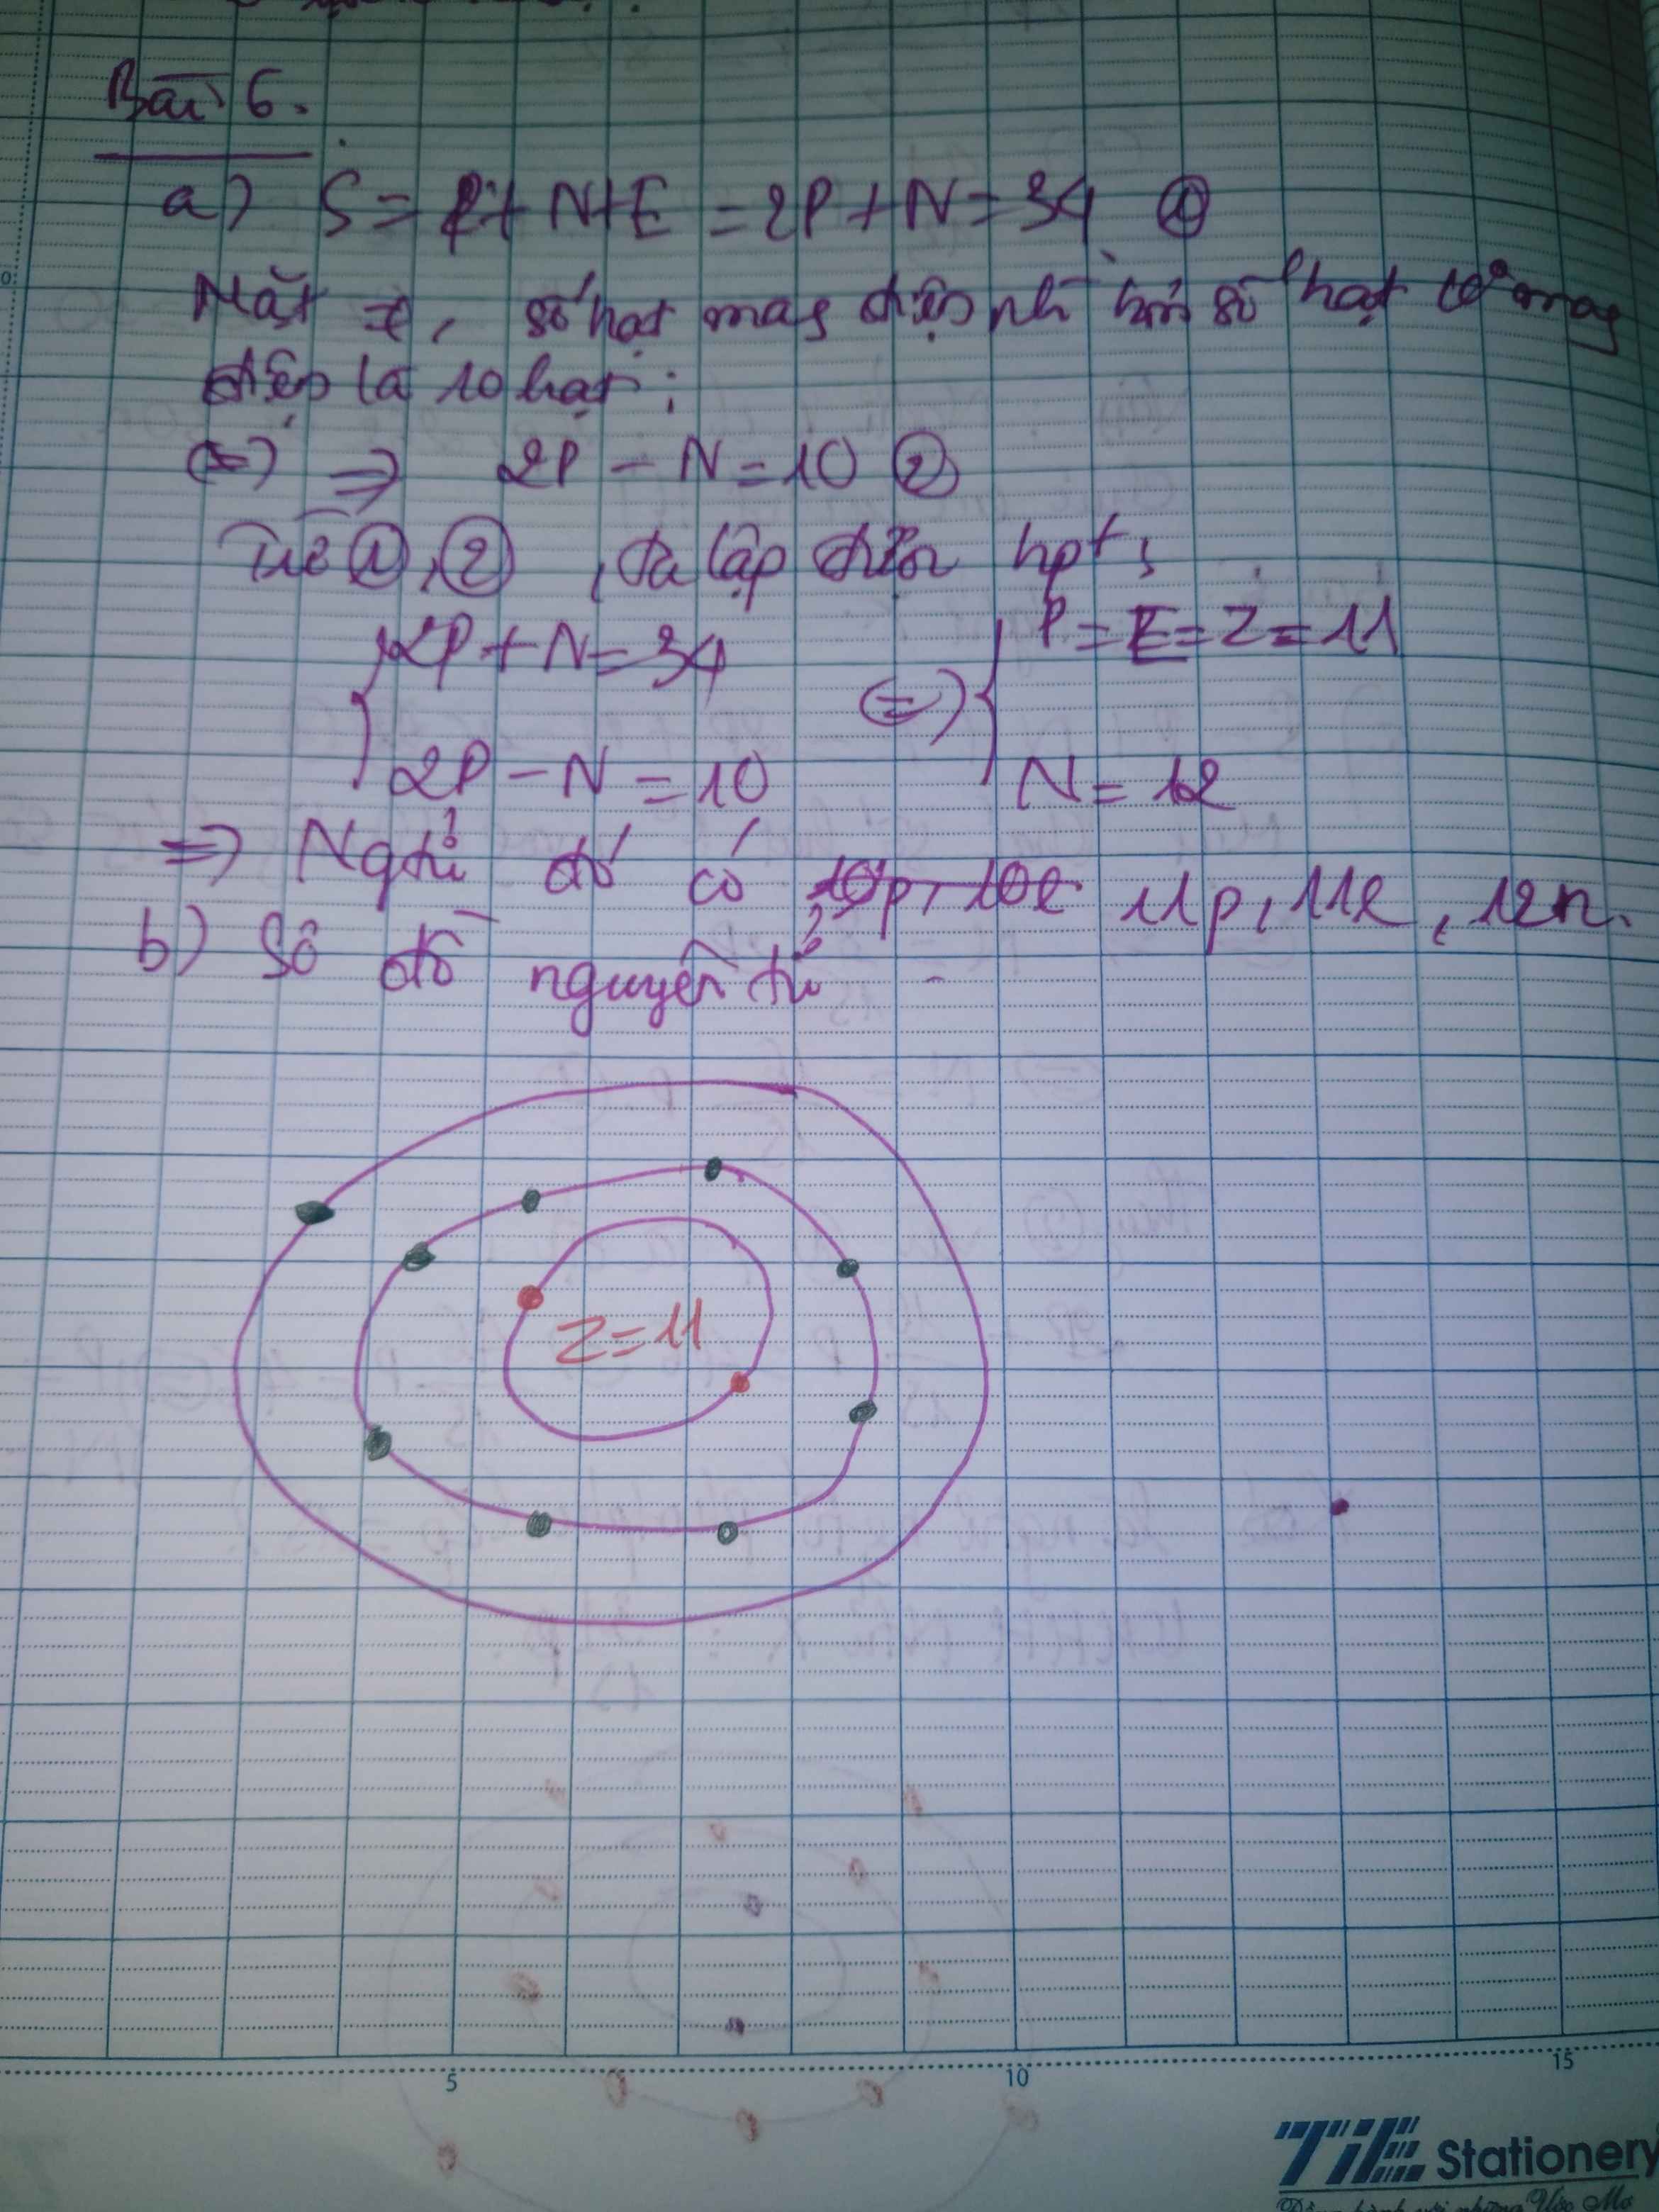 Bài 6.
a) S = P + N + E = 2P + N = 34 ①
Mặt ≠, số hạt mang điện nh hơn số hạt ko mang
điện là 10 hạt:
(=) => 2P - N = 10 ②
Từ ①, ②, ta lập được hpt:
2P + N = 34
(=) P = E = Z = 11
2P - N = 10
N = 12
=> Ngtử đó có 10p, 10e 11p, 11e, 12n.
b) Sơ đồ nguyên tử
Z = 11
5 10 15
TiE Stationery